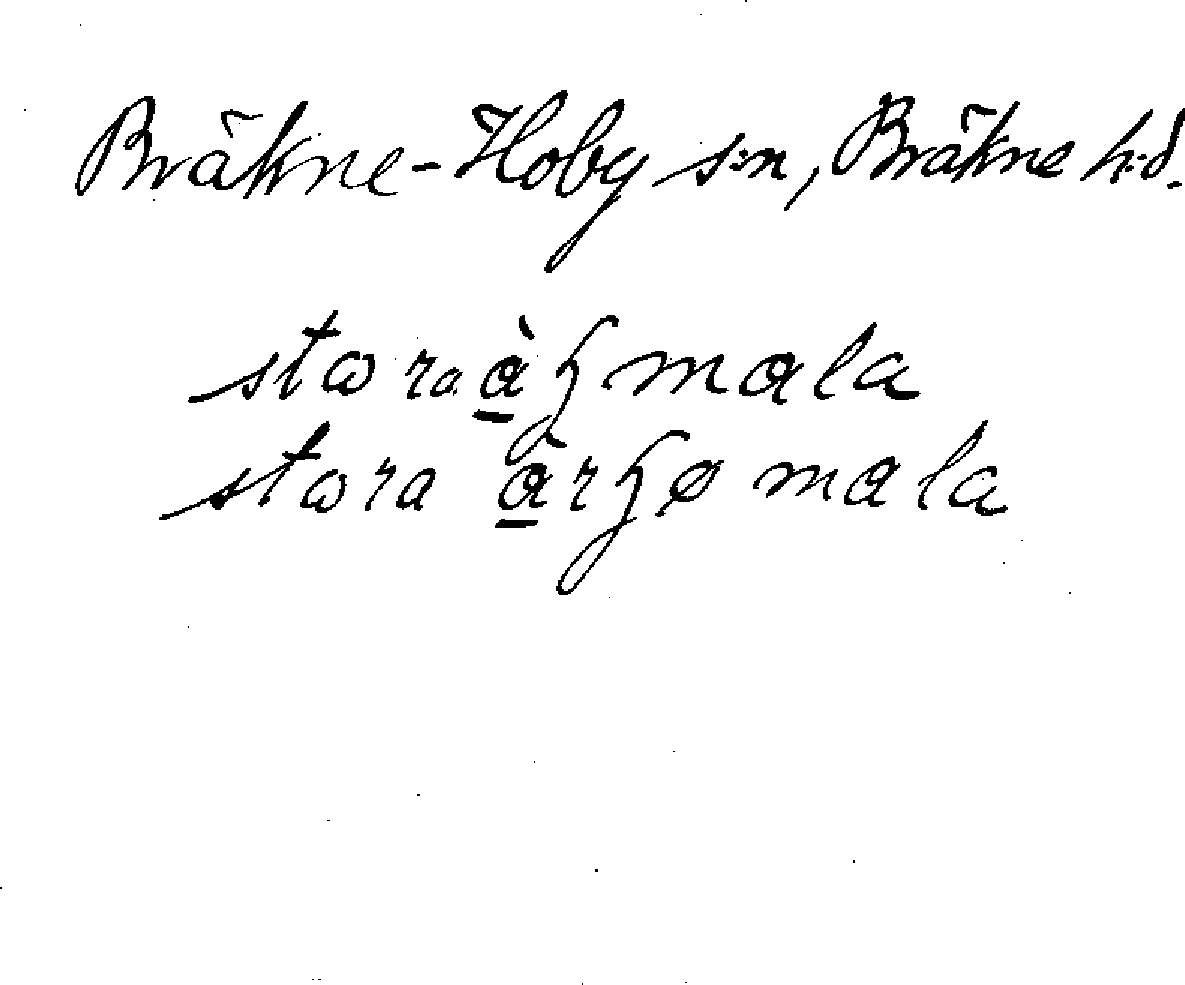 Bräkne-Hoby s:n, Bräkne h:d.
stɷra ɑ̀ɧmɑla
stɷra ɑ̀rɧø mɑla